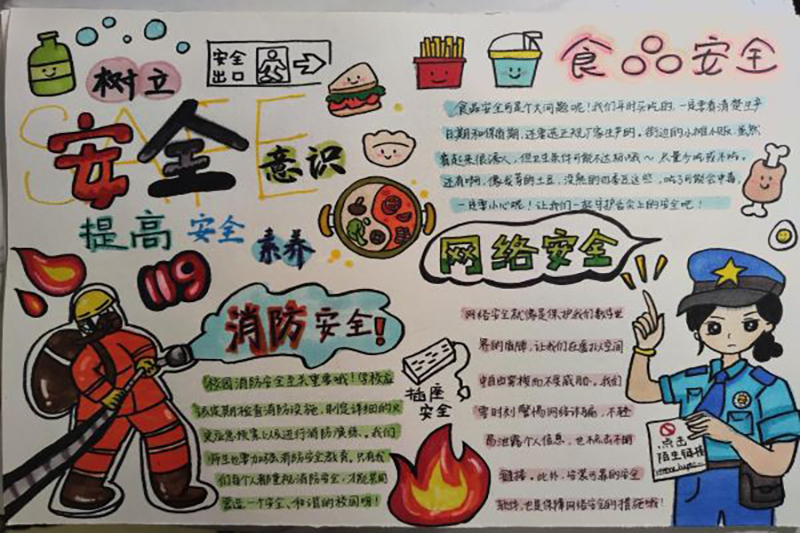 树立
SAFE
安全
意识
提高安全素养
安全
出口
食品安全
食品安全可是个大问题呢！我们平时买吃的，一定要看清楚生产
日期和保质期，还要选正规厂家生产的。街边的小摊小贩，虽然
看起来很诱人，但卫生条件可能不达标哦～尽量少吃或不吃。
还有啊，像发芽的土豆，没熟的四季豆这些，吃了可能会中毒，
一定要小心呢！让我们一起守护舌尖上的安全吧！
网络安全
网络安全就像是保护我们数字世
界的盾牌，让我们在虚拟空间
中自由穿梭而不受威胁。我们
零时刻警惕网络诈骗，不轻
易泄露个人信息，也不点击不明
链接。此外，安装可靠的安全
软件，也是保障网络安全的措施哦！
点击
陌生链接
119
消防安全！
校园消防安全至关重要哦！学校应
该定期检查消防设施，制定详细的火
灾应急预案以及进行消防演练。我们
师生也要加强消防安全教育，只有我
们每个人都重视消防安全，才能共同
营造一个安全、和谐的校园呀！
插座
安全